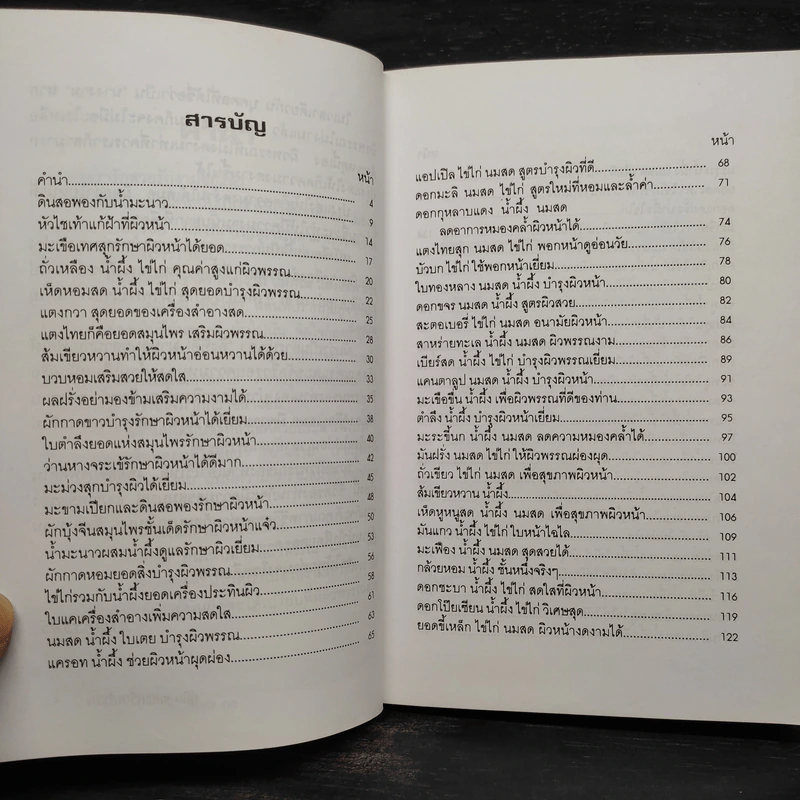 สารบัญ
หน้า
คำนำ.......... 4
ดินสอพองกับน้ำมะนาว.......... 9
หัวไชเท้าแก้ฝ้าที่ผิวหน้า.......... 14
มะเขือเทศสุกรักษาผิวหน้าได้ยอด.......... 17
ถั่วเหลือง น้ำผึ้ง ไข่ไก่ คุณค่าสูงแก่ผิวพรรณ.......... 20
เห็ดหอมสด น้ำผึ้ง ไข่ไก่ สุดยอดบำรุงผิวพรรณ.......... 22
แตงกวา สุดยอดของเครื่องสำอางสด.......... 25
แตงไทยก็คือยอดสมุนไพร เสริมผิวพรรณ.......... 28
ส้มเขียวหวานทำให้ผิวหน้าอ่อนหวานได้ด้วย.......... 30
บวบหอมเสริมสวยให้สดใส.......... 33
ผลฝรั่งอย่ามองข้ามเสริมความงามได้.......... 35
ผักกาดขาวบำรุงรักษาผิวหน้าได้เยี่ยม.......... 38
ใบตำลึงยอดแห่งสมุนไพรรักษาผิวหน้า.......... 40
ว่านหางจระเข้รักษาผิวหน้าได้ดีมาก.......... 42
มะม่วงสุกบำรุงผิวได้เยี่ยม.......... 45
มะขามเปียกและดินสอพองรักษาผิวหน้า.......... 48
ผักบุ้งจีนสมุนไพรชั้นเด็ดรักษาผิวหน้าแจ๋ว.......... 50
น้ำมะนาวผสมน้ำผึ้งดูแลรักษาผิวเยี่ยม.......... 53
ผักกาดหอมยอดสิ่งบำรุงผิวพรรณ.......... 56
ไข่ไก่รวมกับน้ำผึ้งยอดเครื่องประทินผิว.......... 58
ใบแคเครื่องสำอางเพิ่มความสดใส.......... 61
นมสด น้ำผึ้ง ใบเตย บำรุงผิวพรรณ.......... 63
แครอท น้ำผึ้ง ช่วยผิวหน้าผุดผ่อง.......... 65
หน้า
แอปเปิล ไข่ไก่ นมสด สูตรบำรุงผิวที่ดี.......... 68
ดอกมะลิ นมสด ไข่ไก่ สูตรใหม่ที่หอมและล้ำค่า.......... 71
ดอกกุหลาบแดง น้ำผึ้ง นมสด
ลดอาการหมองคล้ำผิวหน้าได้.......... 74
แตงไทยสุก นมสด ไข่ไก่ พอกหน้าดูอ่อนวัย.......... 76
บัวบก ไข่ไก่ ใช้พอกหน้าเยี่ยม.......... 78
ใบทองหลาง นมสด น้ำผึ้ง บำรุงผิวหน้า.......... 80
ดอกขจร นมสด น้ำผึ้ง สูตรผิวสวย.......... 82
สะตอเบอรี่ ไข่ไก่ นมสด อนามัยผิวหน้า.......... 84
สาหร่ายทะเล น้ำผึ้ง นมสด ผิวพรรณงาม.......... 86
เบียร์สด น้ำผึ้ง ไข่ไก่ บำรุงผิวพรรณเยี่ยม.......... 89
แคนตาลูป นมสด น้ำผึ้ง บำรุงผิวหน้า.......... 91
มะเขือขื่น น้ำผึ้ง เพื่อผิวพรรณที่ดีของท่าน.......... 93
ตำลึง น้ำผึ้ง บำรุงผิวหน้าเยี่ยม.......... 95
มะระขี้นก น้ำผึ้ง นมสด ลดความหมองคล้ำได้.......... 97
มันฝรั่ง นมสด ไข่ไก่ ให้ผิวพรรณผ่องผุด.......... 100
ถั่วเขียว ไข่ไก่ นมสด เพื่อสุขภาพผิวหน้า.......... 102
ส้มเขียวหวาน น้ำผึ้ง.......... 104
เห็ดหูหนูสด น้ำผึ้ง นมสด เพื่อสุขภาพผิวหน้า.......... 106
มันแกว น้ำผึ้ง ไข่ไก่ ใบหน้าไฉไล.......... 109
มะเฟือง น้ำผึ้ง นมสด สุดสวยได้.......... 111
กล้วยหอม น้ำผึ้ง ชั้นหนึ่งจริงๆ.......... 113
ดอกชะบา น้ำผึ้ง ไข่ไก่ สดใสที่ผิวหน้า.......... 116
ดอกโป๊ยเซียน น้ำผึ้ง ไข่ไก่ วิเศษสุด.......... 119
ยอดขี้เหล็ก ไข่ไก่ นมสด ผิวหน้างดงามได้.......... 122